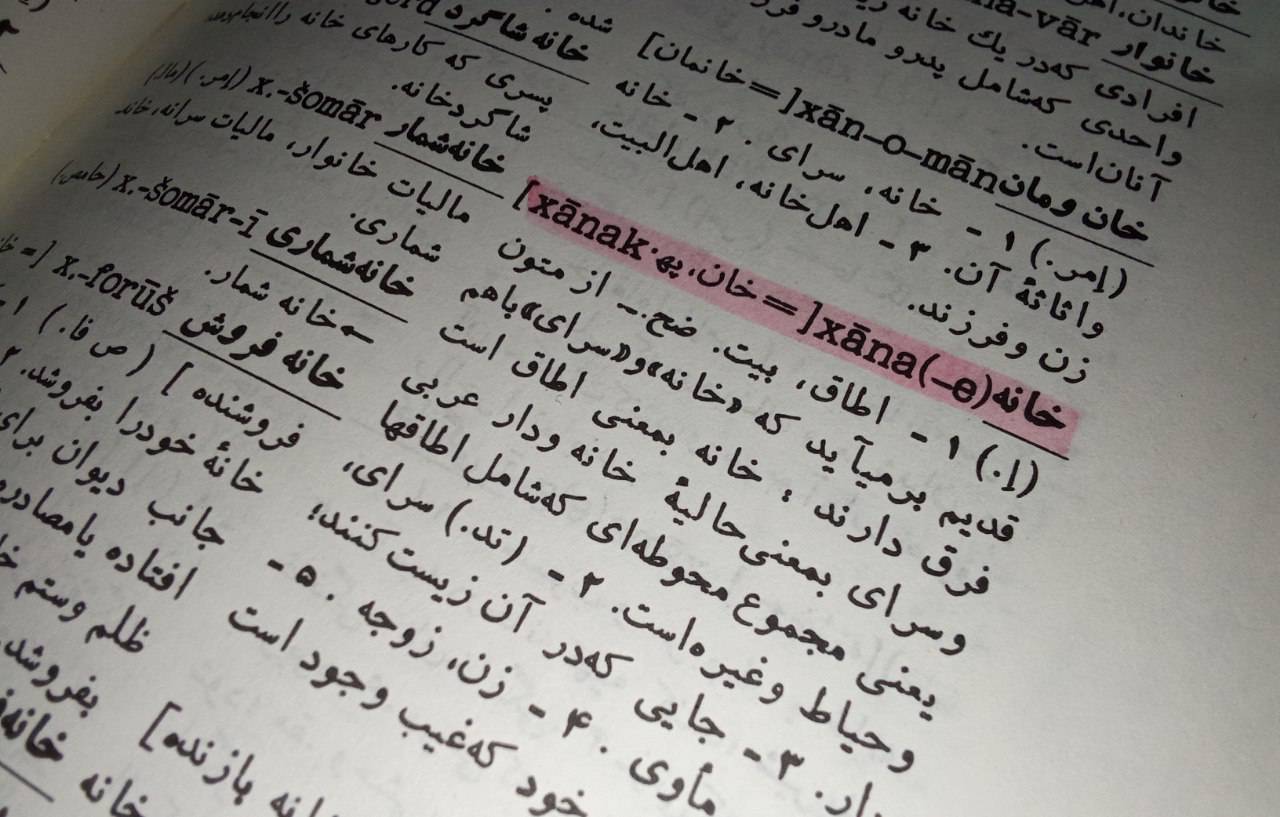 خاندان،
خانوار na-vār
افرادی که‌در یك خانه
واحدی که‌شامل پدرو مادرو
آنان‌است.
خان ومان xān-o-mān[=خانمان]
(اِمر.) ۱ - خانه، سرای . ۲ - خانه
واثاثۀ آن. ۳ - اهل‌خانه، اهل‌البیت،
زن وفرزند.
خانه xāna(-e)[=خان، په. xānak]
(اِ.) ۱ - اطاق، بیت. ضح.ـ از متون
قدیم برمیآید که «خانه»و«سرای»باهم
فرق دارند ؛ خانه بمعنی اطاق است
وسرای بمعنی‌حالیۀ خانه ودار عربی
یعنی مجموع محوطه‌ای که‌شامل اطاقها
وحیاط وغیره‌است. ۲ - (تد.) سرای،
دار. ۳ - جایی که‌در آن زیست کنند؛
مأوی . ۴ - زن، زوجه . ۵ -
خود که‌غیب وجود است
شده .
خانه شاگرد
پسری که کارهای خانه راانجام‌دهد،
شاگردخانه.
خانه‌شمار x.-šomār (اِمر.)(مال.)
مالیات خانوار، مالیات سرانه، خانه
شماری.
خانه‌شماری x.-šomār-ī (حامص.)
←خانه شمار.
خانه فروش x.-forūš [=
فروشنده ] ( ص فا.) ۱ -
خانۀ خودرا بفروشد. ۲
جانب دیوان برای
افتاده یامصادره
ظلم وستم
بفروشد.
خانه
خانه بازنده]